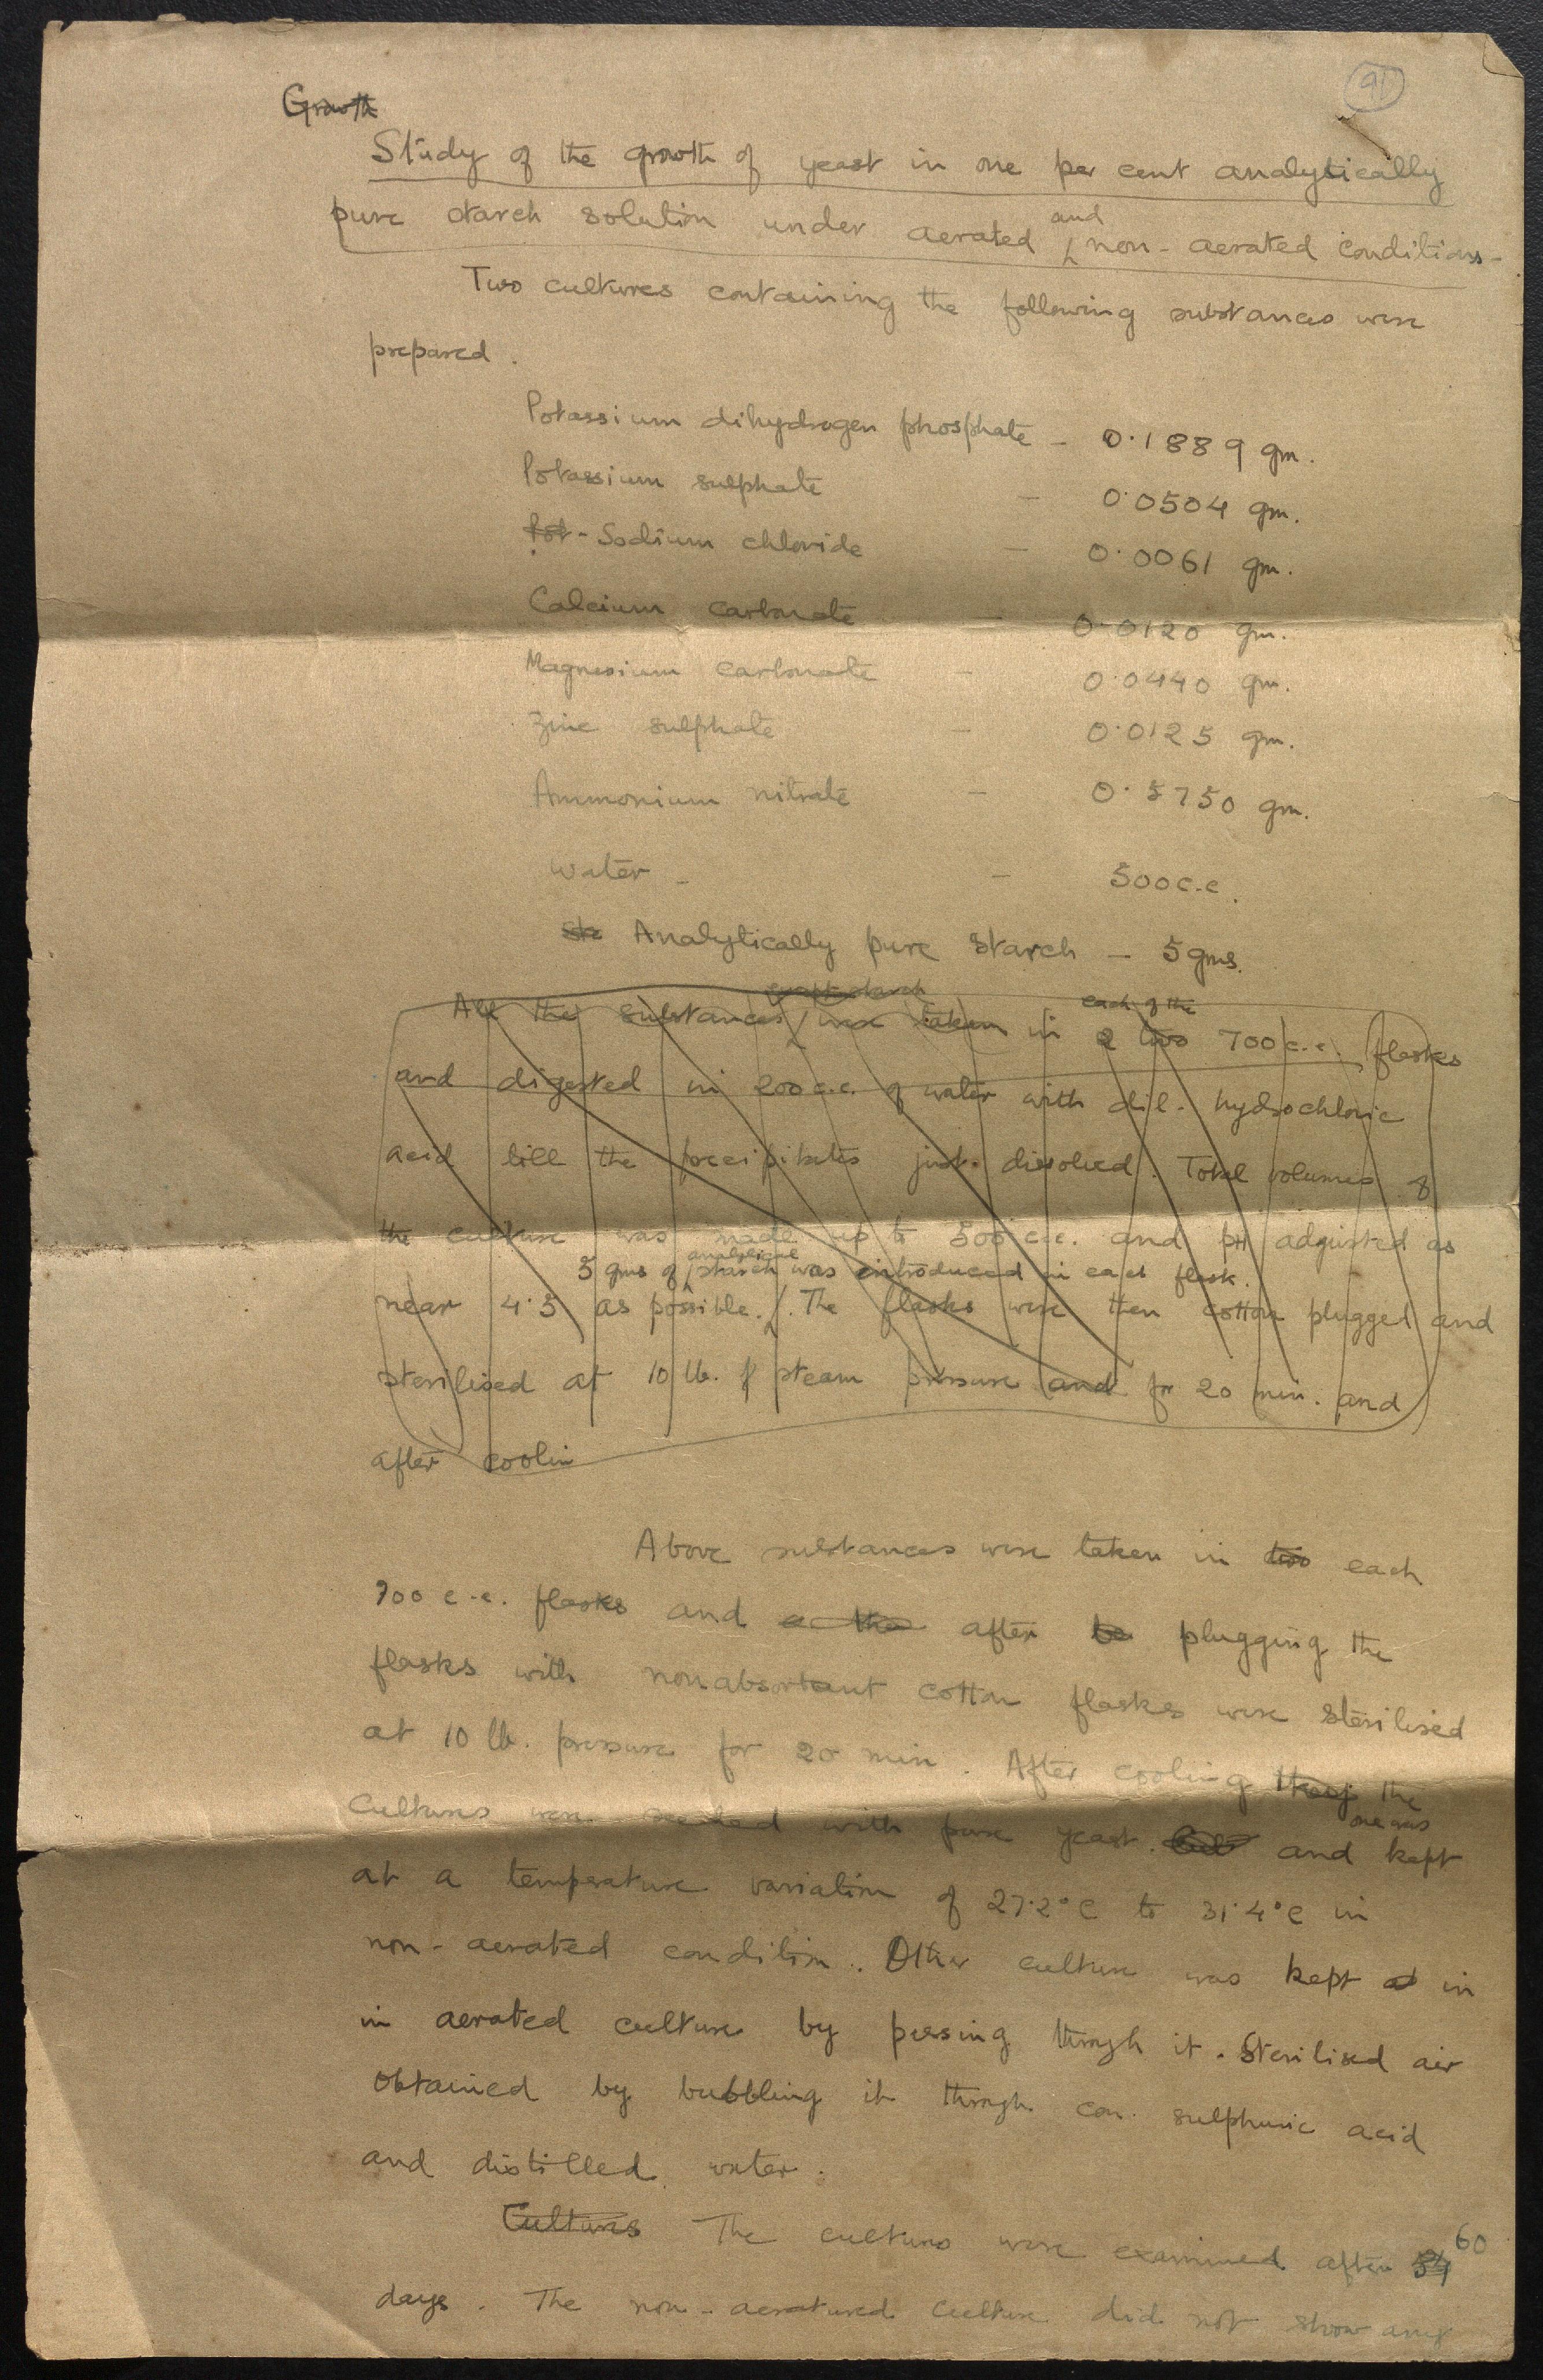 91
Growth
Study of the growth of yeast in one per cent analytically
and
pure starch solution under aerated non-aerated conditions-
Two cultures containing the following substances were
prepared.
Potassium dihydrogen phosphate - 0.1889 gm.
Potassium sulphate - 0.0504 gm.
Pot- Sodium chloride - 0.0061 gm.
Calcium carbonate - 0.0120 gm.
Magnesium carbonate - 0.0440 gm.
Zinc sulphate - 0.0125 gm.
Ammonium nitrate - 0.5750 gm.
Water - - 500 c.c.
sta Analytically pure starch - 5 gms.
starch each of the
All the substances were taken in 2 two 700 c.c. flasks
and digested in 200 c.c. of water with dil. hydrochloric
acid till the precipitates just dissolved. Total volumes of
the culture was made up to 500 c.c. and pH adjusted as
analytical
5 gms of starch was introduced in each flask.
near 4.5 as possible. The flasks were then cotton plugged and
sterilised at 10 lb. of steam pressure and for 20 min. and
after coolin
Above substances were taken in two each
700 c.c. flasks and after be plugging the
flasks with nonabsorbant cotton flasks were sterilised
at 10 lb. pressure for 20 min. After cooling they the
one was
cultures were seeded with pure yeast. and kept
at a temperature variation of 27.2°C to 31.4°C in
non-aerated condition. Other culture was kept at in
in aerated culture by passing through it. Sterilised air
obtained by bubbling it through con. sulphuric acid
and distilled water.
60
Cultures The cultures were examined after 54
days. The non-aeratured culture did not show any